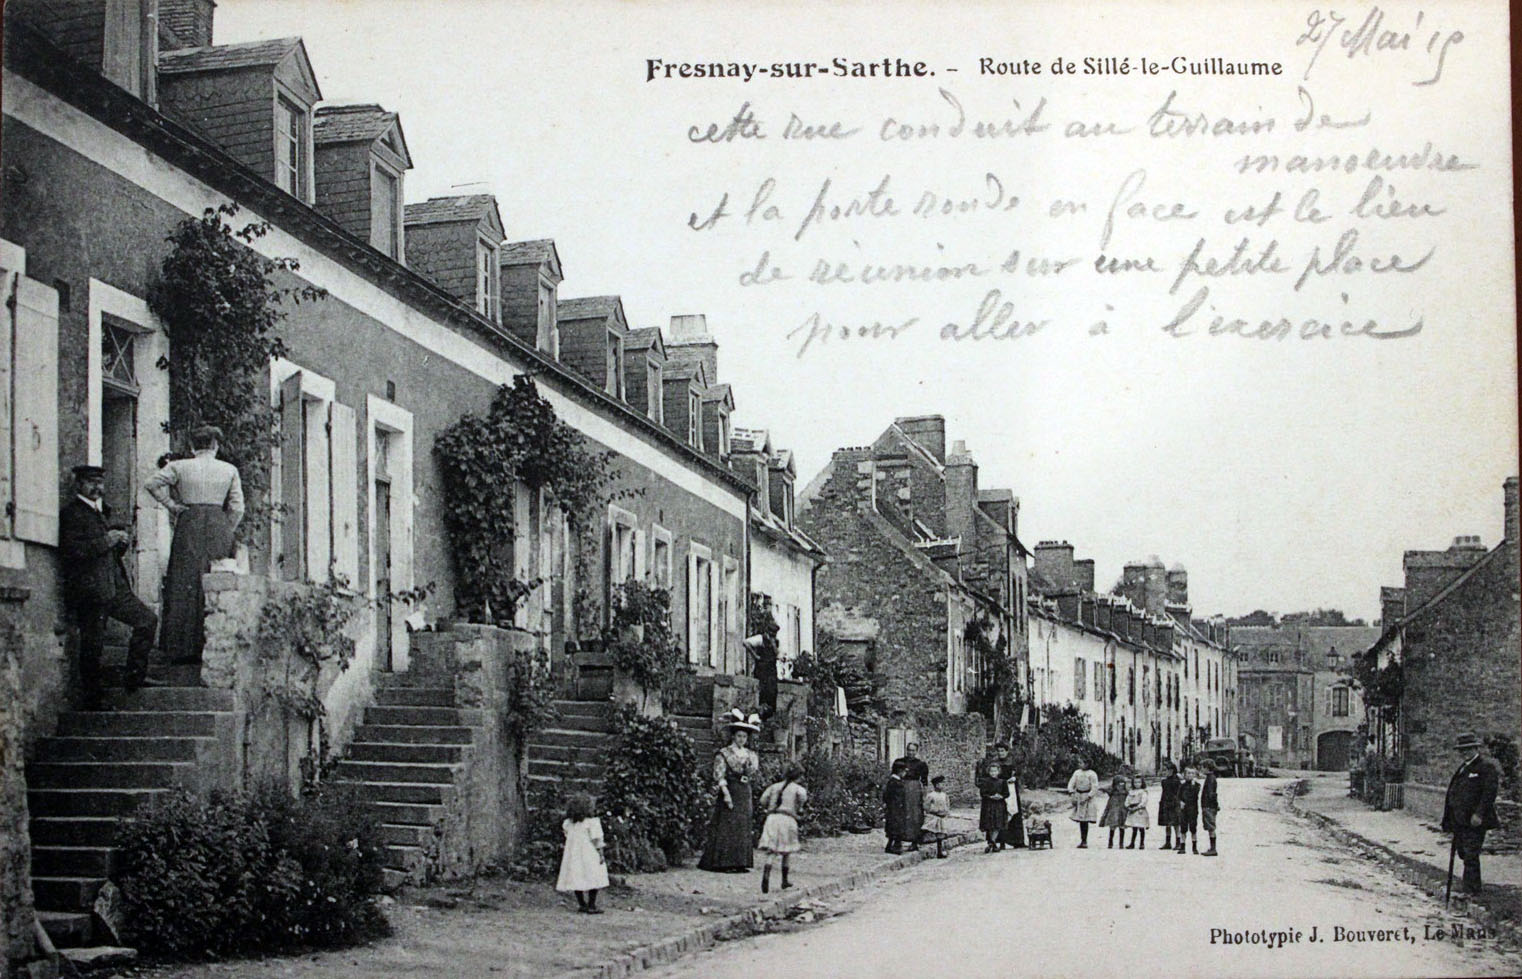 27 Mai 15
Fresnay-sur-Sarthe. - Route de Sillé-le-Guillaume
cette rue conduit au terrain de
manoeuvre
et la porte ronde en face est le lieu
de réunion sur une petite place
pour aller à l'exercice
Phototypie J. Bouveret, Le Mans